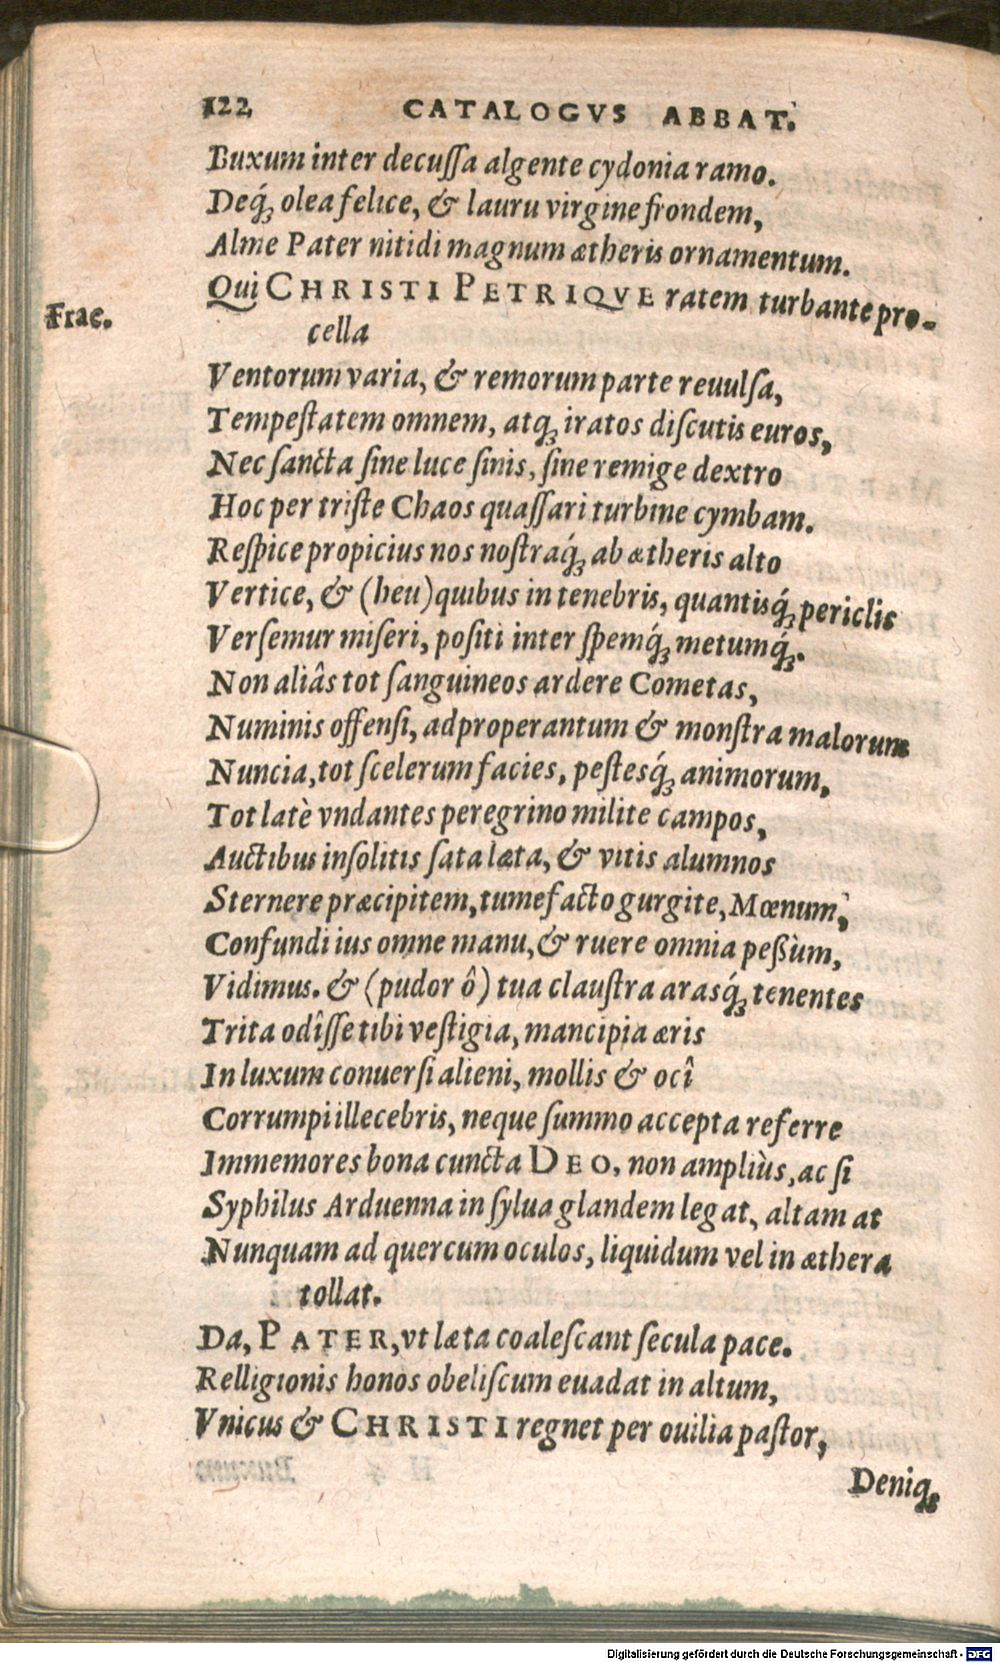 122 CATALOGVS ABBAT.
Buxum inter decuſſa algente cydonia ramo.
Deq́ꝫ olea felice, & lauru virgine frondem,
Alme Pater nitidi magnum ætheris ornamentum.
Qui CHRISTI PETRIQVE ratem turbante pro-
Frac.
cella
Ventorum varia, & remorum parte reuulſa,
Tempeſtatem omnem, atqꝫ iratos diſcutis euros,
Nec ſancta ſine luce ſinis, ſine remige dextro
Hoc per triſte Chaos quaſſari turbine cymbam.
Reſpice propicius nos noſtraq́ꝫ ab ætheris alto
Vertice, & (heu) quibus in tenebris, quantisq́ꝫ periclis
Verſemur miſeri, poſiti inter ſpemq́ꝫ metumq́ꝫ.
Non aliâs tot ſanguineos ardere Cometas,
Numinis offenſi, adproperantum & monſtra malorum
Nuncia, tot ſcelerum facies, peſtesq́ꝫ animorum,
Tot latè vndantes peregrino milite campos,
Auctibus inſolitis ſata læta, & vitis alumnos
Sternere præcipitem, tumefacto gurgite, Mœnum,
Confundi ius omne manu, & ruere omnia peßùm,
Vidimus. & (pudor ô) tua clauſtra arasq́ꝫ tenentes
Trita odîſſe tibi veſtigia, mancipia æris
In luxum conuerſi alieni, mollis & ocî
Corrumpi illecebris, neque ſummo accepta referre
Immemores bona cuncta DEO, non ampliùs, ac ſi
Syphilus Arduenna in ſylua glandem legat, altam at
Nunquam ad quercum oculos, liquidum vel in æthera
tollat.
Da, PATER, vt læta coaleſcant ſecula pace.
Relligionis honos obeliſcum euadat in altum,
Vnicus & CHRISTI regnet per ouilia paſtor,
Deniqꝫ
Digitalisierung gefördert durch die Deutsche Forschungsgemeinschaft - DFG